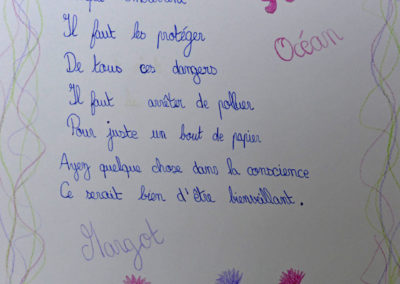 Il faut les protéger
Océan
De tous ces dangers
Il faut arrêter de polluer
Pour juste un bout de papier
Ayez quelque chose dans la conscience
Ce serait bien d'être bienveillant.
Margot